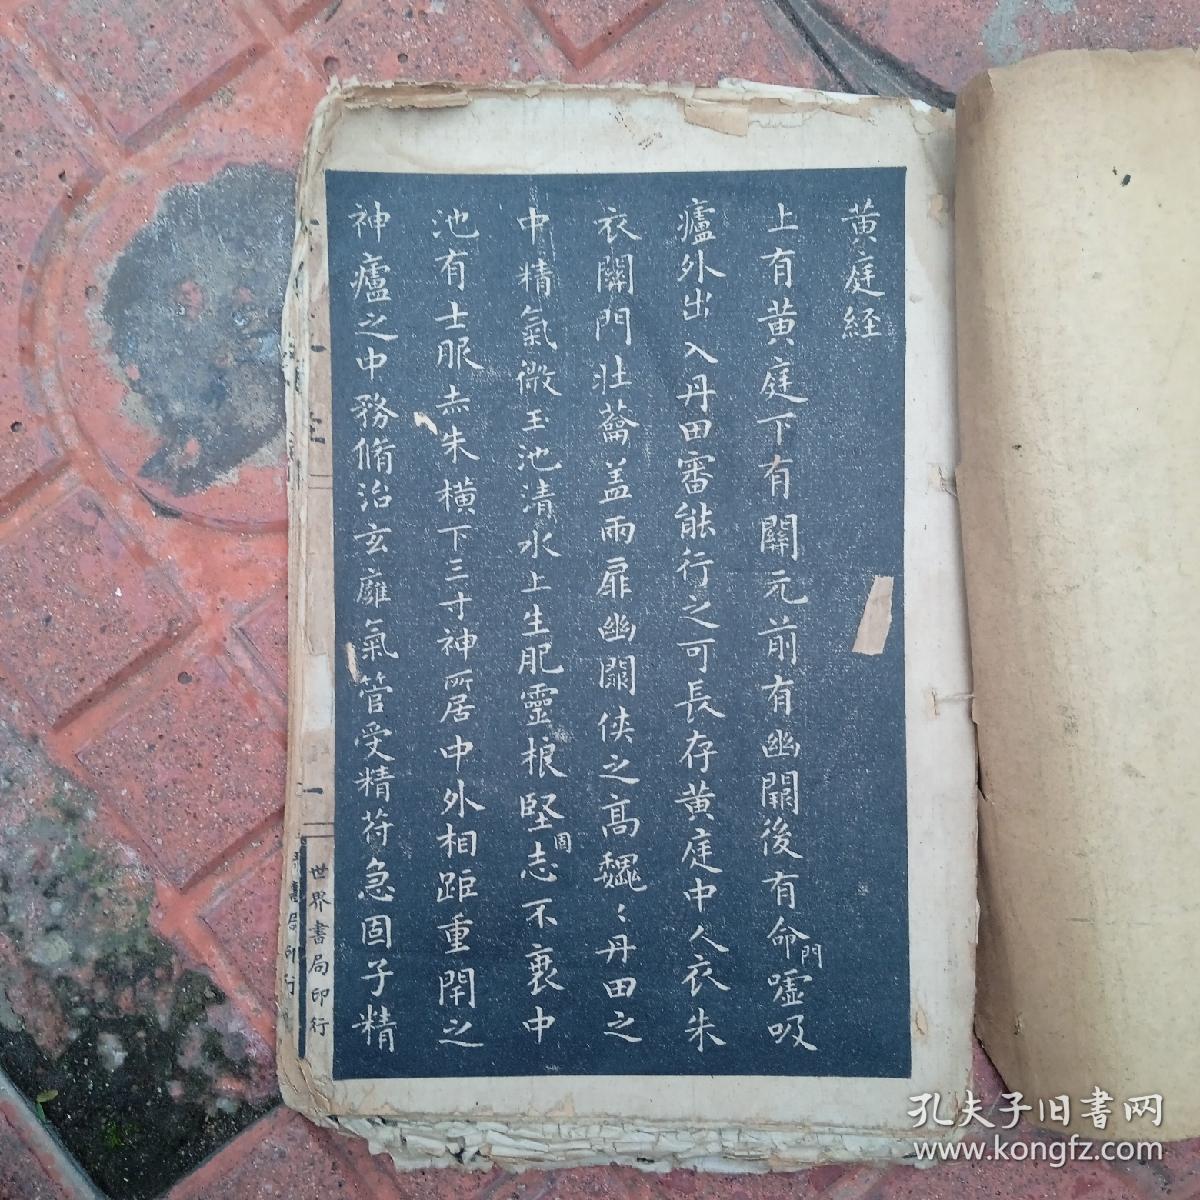 黄庭経
上有黄庭下有關元前有幽闕後有命門嘘吸
廬外出入丹田審能行之可長存黄庭中人衣朱
衣關門壮蘥盖兩扉幽闕侠之髙巍〻丹田之
中精氣微玉池清水上生肥靈根堅固志不衰中
池有士服赤朱横下三寸神所居中外相距重閇之
神廬之中務脩治玄廱氣管受精苻急固子精
世界書局印行
孔夫子旧書网
www.kongfz.com